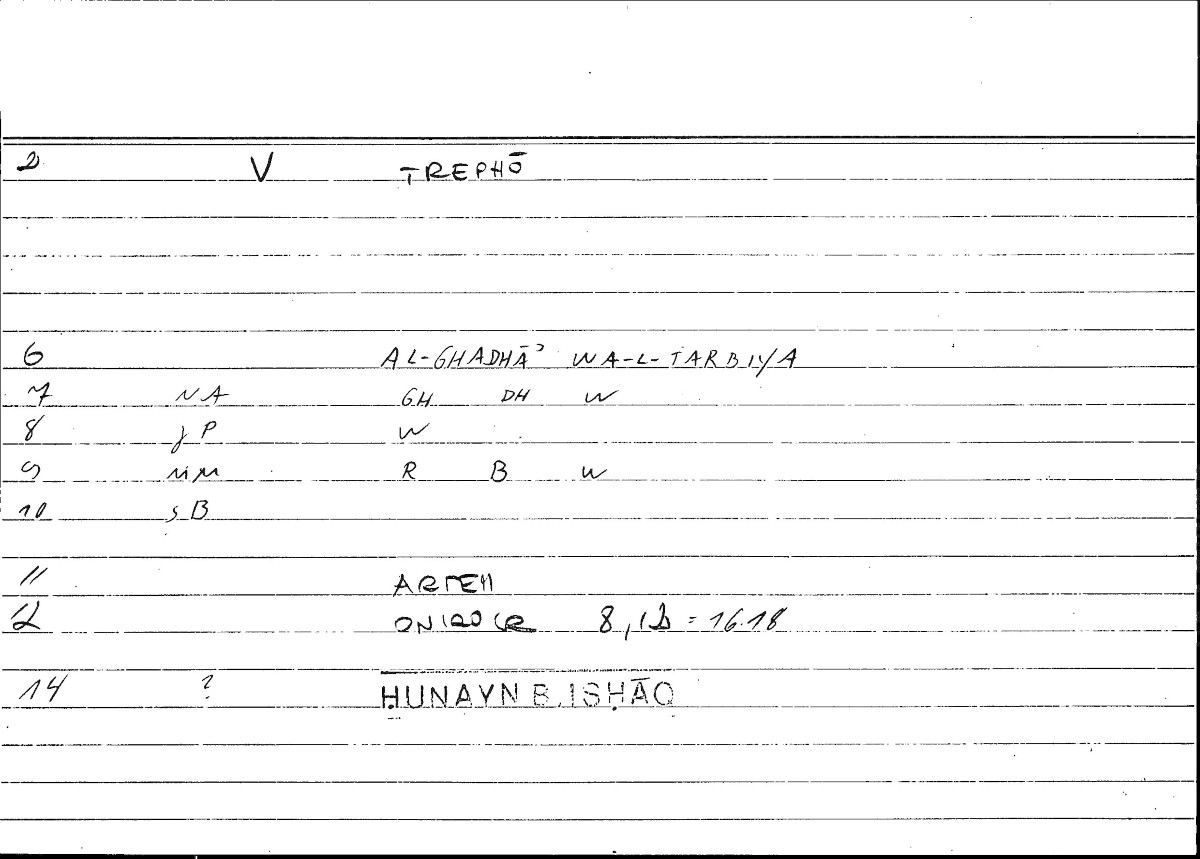 2 V TREPHŌ
6 AL-GHADHĀʾ WA-L-TARBIYA
7 NA GH DH W
8 jP W
9 NM R B W
10 sB
11 ARTEM
2 ONIROCR 8,12 = 16.18
14 ? ḤUNAYN B. ISḤĀQ